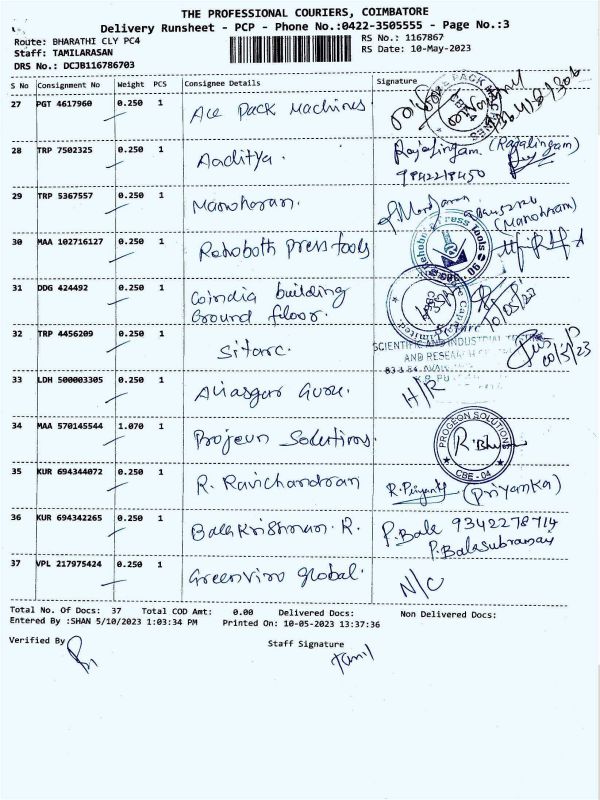 THE PROFESSIONAL COURIERS, COIMBATORE
Delivery Runsheet - PCP - Phone No.:0422-3505555 - Page No.:3
Route: BHARATHI CLY PC4 RS No.: 1167867
Staff: TAMILARASAN RS Date: 10-May-2023
DRS No.: DCJB116786703
S No Consignment No Weight PCS Consignee Details Signature
27 PGT 4617960 0.250 1 Ace Pack Machines
28 TRP 7502325 0.250 1 Aaditya. Rajalingam (Rajalingam)
9842218450
29 TRP 5367557 0.250 1 Manoharan. (Manoharam)
30 MAA 102716127 0.250 1 Rehoboth Press tools
31 DDG 424492 0.250 1 Coindia building
Ground floor. 10/05/23
32 TRP 4456209 0.250 1 Sitarc.
SCIENTIFIC AND INDUSTRIAL
AND RESEARCH
33 LDH 500003305 0.250 1 Aliasgar Guru. H/R
34 MAA 570145544 1.070 1 Projeun Solutions.
PROGEON SOLUTIONS
CBE - 04
35 KUR 694344072 0.250 1 R. Ravichandran R.Priyanka (Priyanka)
36 KUR 694342265 0.250 1 Balakrishnan. R. P.Bala 9342278714
P.Balasubramani
37 VPL 217975424 0.250 1 Greenviro global. N/C
Total No. Of Docs: 37 Total COD Amt: 0.00 Delivered Docs: Non Delivered Docs:
Entered By :SHAN 5/10/2023 1:03:34 PM Printed On: 10-05-2023 13:37:36
Verified By Staff Signature
Tamil